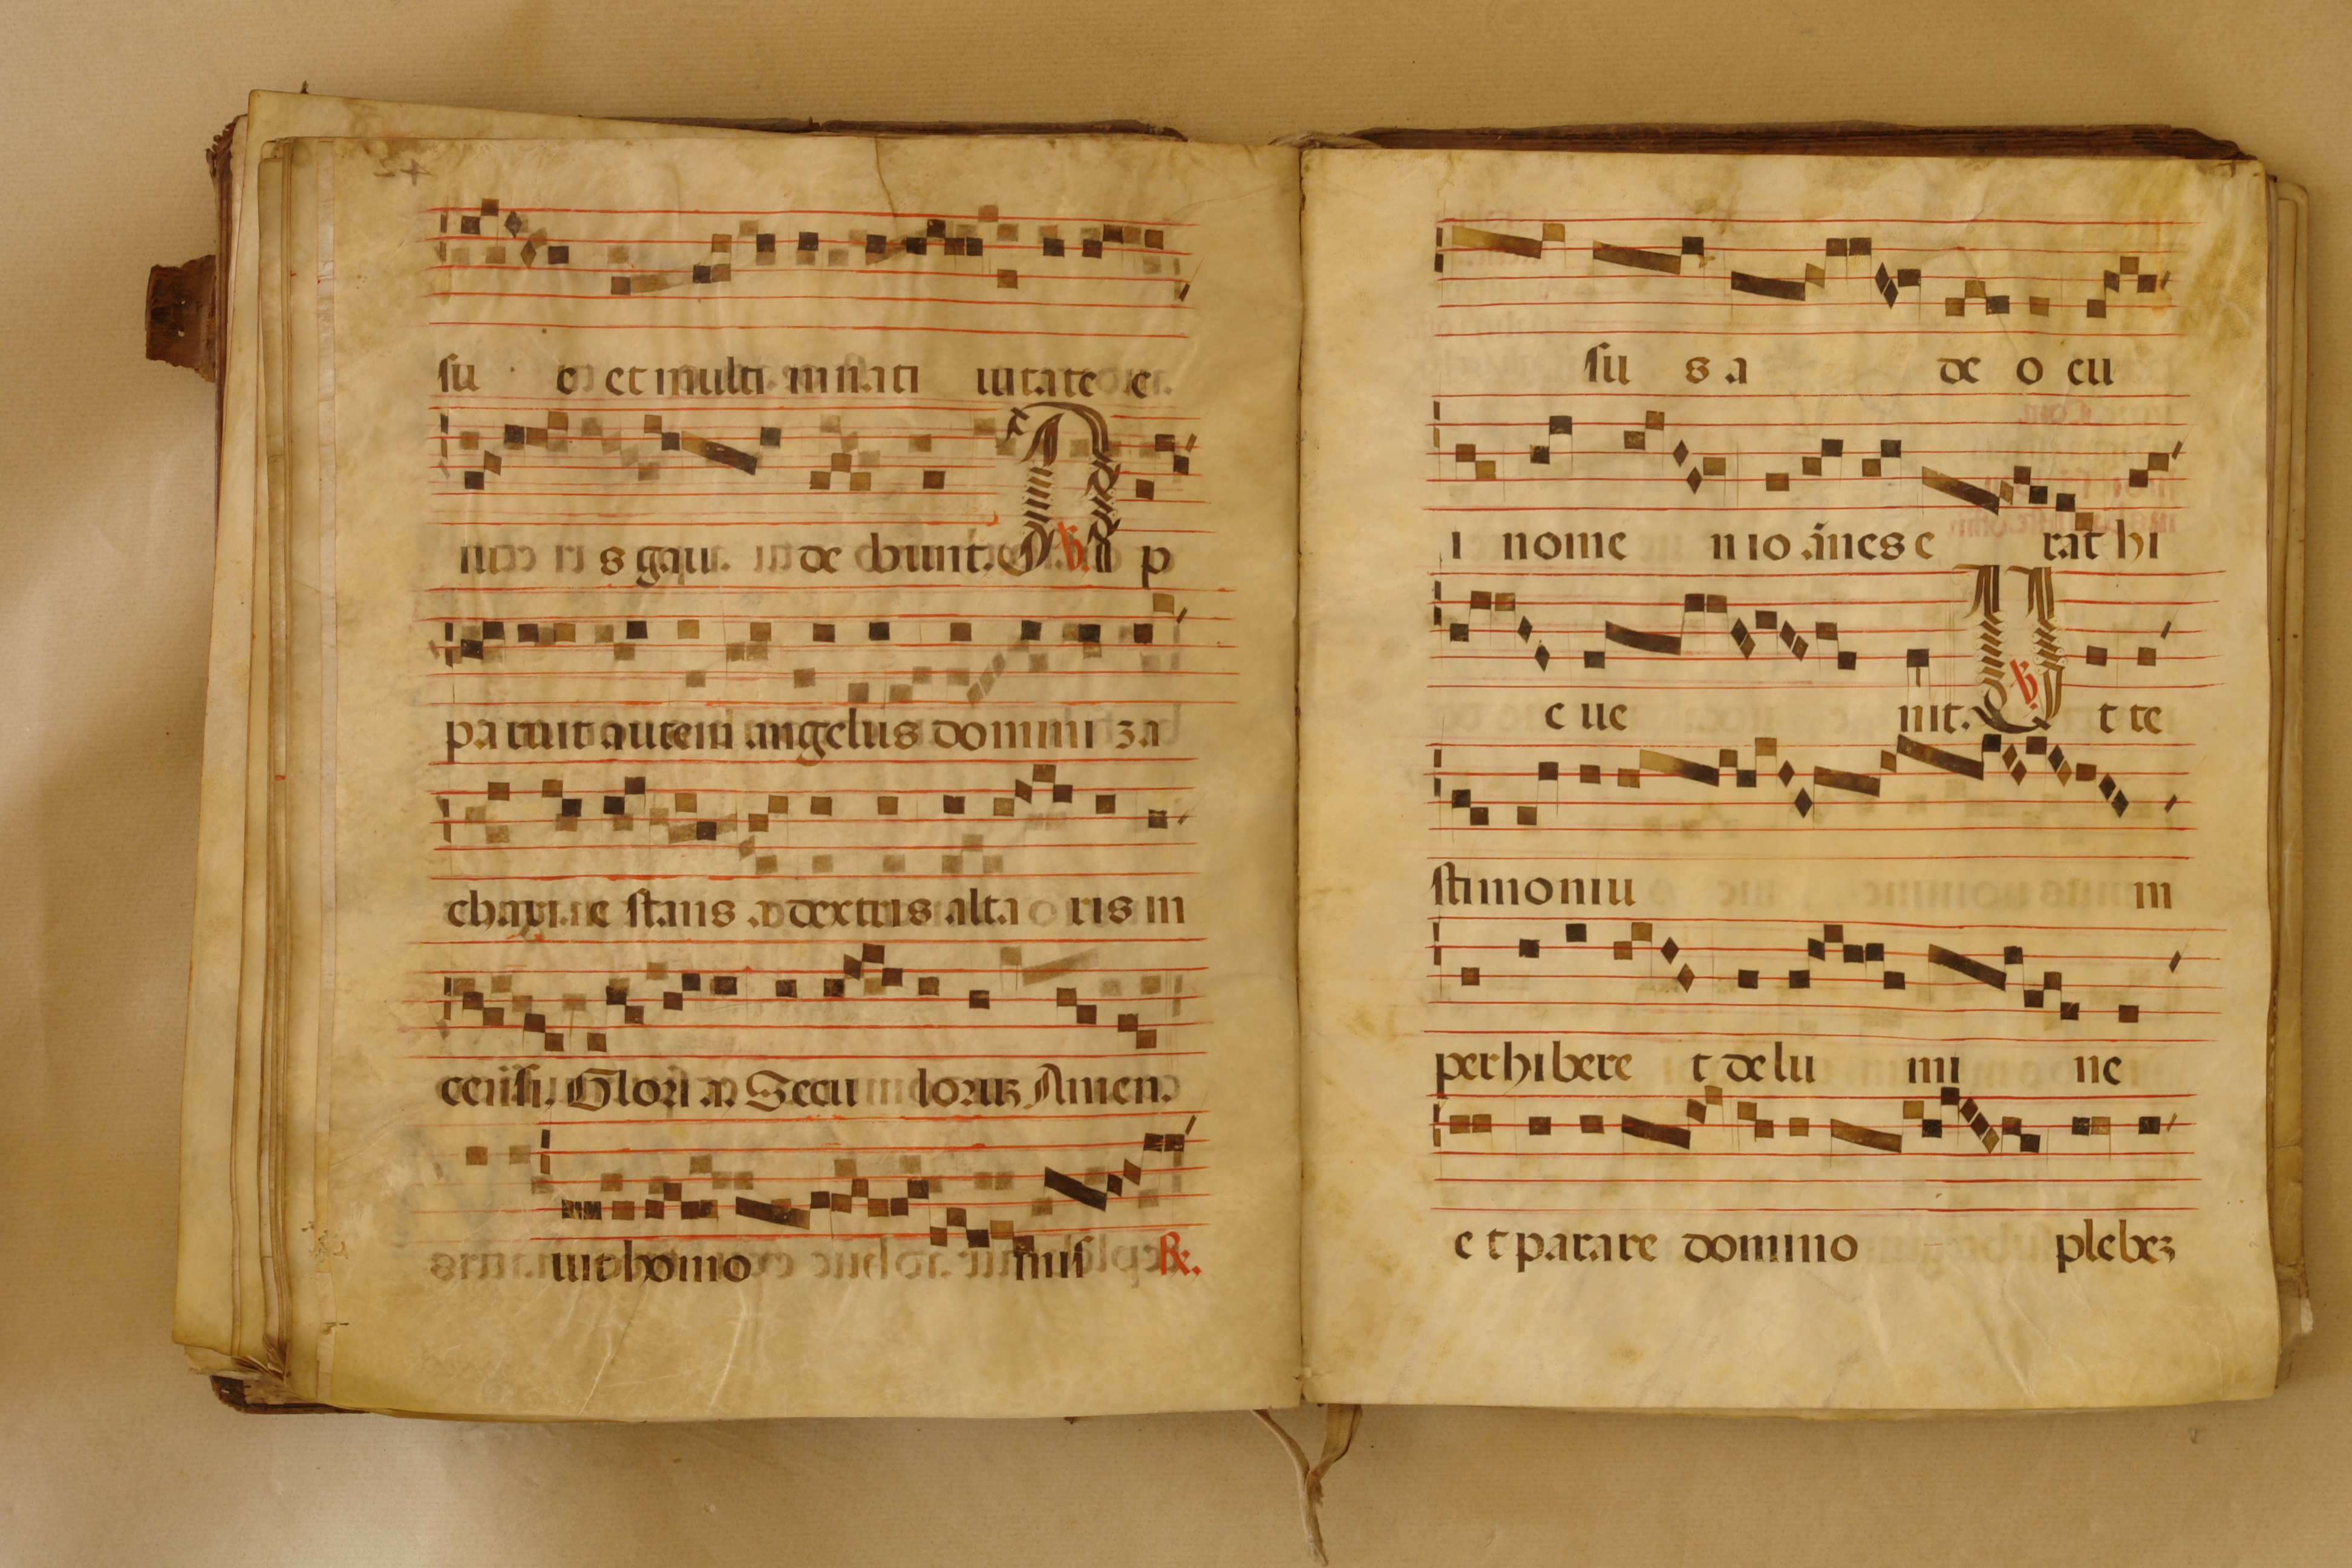 su e et multi in nati uitate e
ius gau de bunt. ℣. A p
paruit autem angelus domini za
charie stans a dextris alta ris in
censi. Glori a. Secu lorum Amen.
uit homo mis ℟.
su s a de o cu
i nome n io annes e rat hi
c ue nit. ℣. U t te
stimoniu m
perhibere t de lu mi ne
e t parare domino plebeʒ